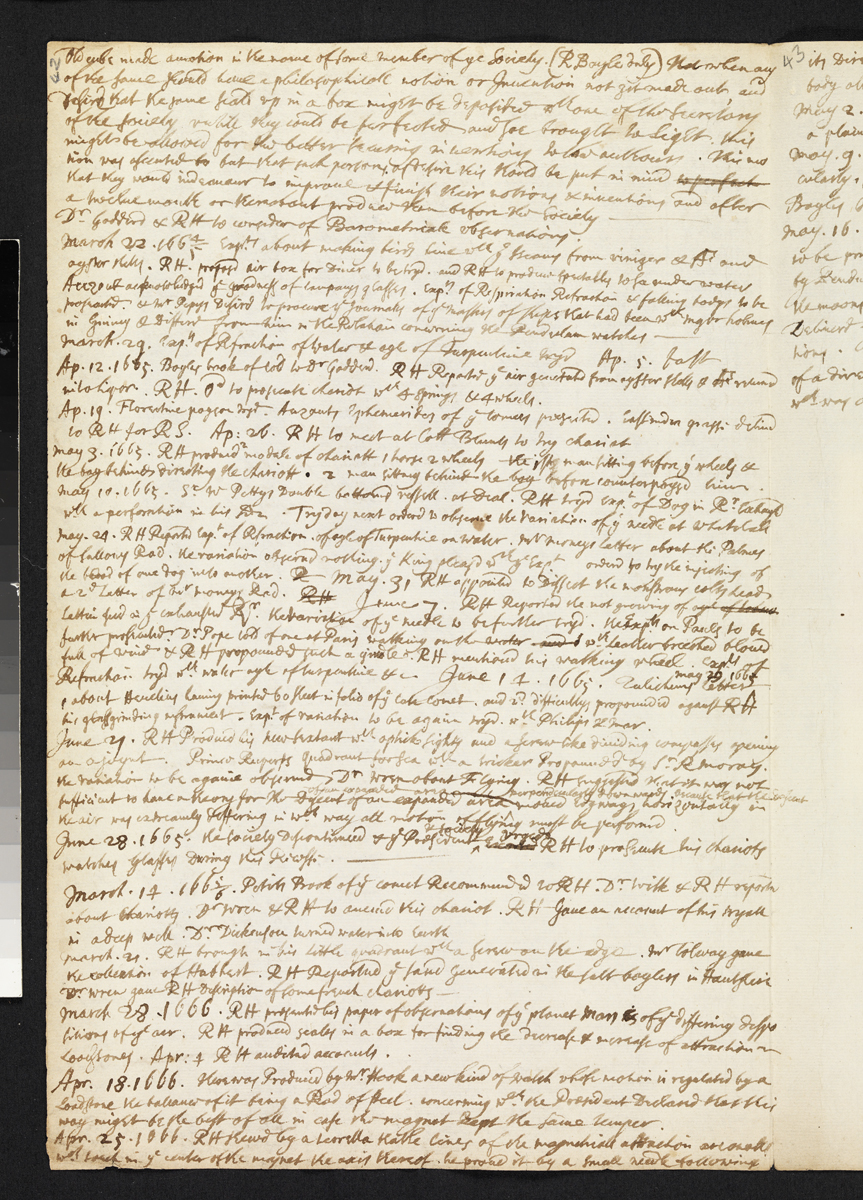 42
made a motion in the name of some member of ye Society. (R. Boyle only) that when any
of the same should have a philosophicall notion or Invention not yet made out, and
desird that the same seald up in a box might be deposited wth one of the Secretarys
of the Society untill they could be perfected and soe brought to Light. this
might be allowed for the better securing inventions to the authours. This mo
tion was assented to but that such persons as desire this should be put in mind to perfect
that they would indeavour to improue & finish their notions & inventions and after
a twelue month or thereabout produce them before the Society
Dr. Goddard & RH to consider of Barometricall observations
March 22. 166 4/5 Expts about making bird lime wth ye steams from viniger & and
oyster shells. RH. proposd air box for Diver to be tryd. and RH to produce spectacles to see under water
Auzout acknowledged ye goodness of campanys glasses. Expts of Respiration Refraction & falling bodys to be
prosecuted. & Mr Pepys Desird to procure ye Journals of ye masters of ships that had been wth major holmes
in Guiney & differd from him in the Relation concerning the Pendulum watches
March. 29. Expts of Refraction of water & oyle of Turpentine tryd Ap. 5. fast
Ap. 12. 1665. Boyles book of cold to Dr Goddard. RH Reported ye air generated from oyster shells & returnd
into liquor. RH. Od to prosecute chariot wth 4 springs & 4 wheels.
Ap. 19. Florentine poyson tryd. Auzouts Ephemerides of ye Comets presented. East india grasse deliud
to RH for RS. Ap. 26. RH to meet at Coll Blunts to try chariot
may 3. 1665. RH producd modele of chariott 1 horse 2 wheels the 1st man sitting before ye wheels &
the boy behind directing the chariott. 2 man sitting behind the boy before counterpoysed him.
may 10. 1665. Sr Wm Pettys Double bottomd vessell. at Deal. RH tryd Expt of Dog in Rr. exhausted
wth a perforation in his . Tryday next orderd to observe the Variation of ye needle at whitehall
may. 24. RH Reported Expt of Refraction of oyle of Turpentine on water. Mr moneys Letter about the Palmes
of Read. the variation observd nothing. ye King pleasd wth ye Expt orderd to try the injecting of
the bloud of one dog into another. May. 31 RH appointed to Dissect the monstrous colts head
a 2d Letter of Mr moneys Read. RH June 7. RH Reported the not growing of
lettice seed in ye exhausted Rr. the variation of ye needle to be further tryd. the Expts on Pauls to be
further prosecuted. Dr. Pope told of one at Paris walking on the water wth leather breeches blowd
full of wind & RH propounded such a girdle. RH mentiond his walking wheel. Expts of
Refraction tryd wth water oyle of turpentine &c. June 14. 1665. Zulichems Letter may 1665
about Heuelius having printed 60 sheet in folio of ye late comet. and 2. difficultys propounded against RH
his glassgrinding instrument. Expt of variation to be again tryd. wth Philips & mar.
June 21. RH Produced his new sextant wth optick sights and a screw-like dividing compasses opening
an Prince Ruperts Quadrant for sea wth a tricker Propounded by Sr. R moray.
the variation to be againe observd. Dr Wren about Flying. RH suggested that it was not
sufficient to have a theory for the Descent of an expanded area perpendicularly downwards because that the
the air was extreamly differing in wch way all motion of flying must be performd
June 28. 1665. the Society Discontinued & ye President RH to prosecute his chariots
watches Glasses During this Recesse.
March. 14. 166 5/6. Petits Book of ye comet Recommended to RH. Dr. Wilk & RH report
about Chariotts. Dr Wren & RH to amend this chariot. RH Gave an account of his tryall
in a deep well. Dr Dickenson turned water into Earth
March. 21. RH brought in his little quadrant wth a screw on the edge. Mr Colway gave
the collection of Hubbert. RH Reported ye sand generated in the salt boylers in Hautshire
Dr Wren gave RH Description of some french chariotts
March 28. 1666. RH presented his paper of observations of ye planet mars & of ye differing dispo
sitions of ye air. RH produced scales in a box for finding the decrease & increase of attraction
Loadstones. Apr: 4 RH audited accounts.
Apr. 18. 1666. there was Produced by Mr. Hook a new kind of watch whose motion is regulated by a
Loadstone the ballance of it being a Rod of steel. concerning wch the President Declard that this
way might be the best of all in case the magnet kept the same temper.
Apr. 25. 1666. RH shewd by a terrella that the lines of the magneticall attraction
wch touch in ye center of the magnet the axis thereof. he proved it by a small needle following
43
its Dire
body ab
May 2.
a plain
May. 9.
cularly.
Boyles
May. 16.
to be pro
by Pendu
the moon
Deliverd
tions.
of a dire
wch was